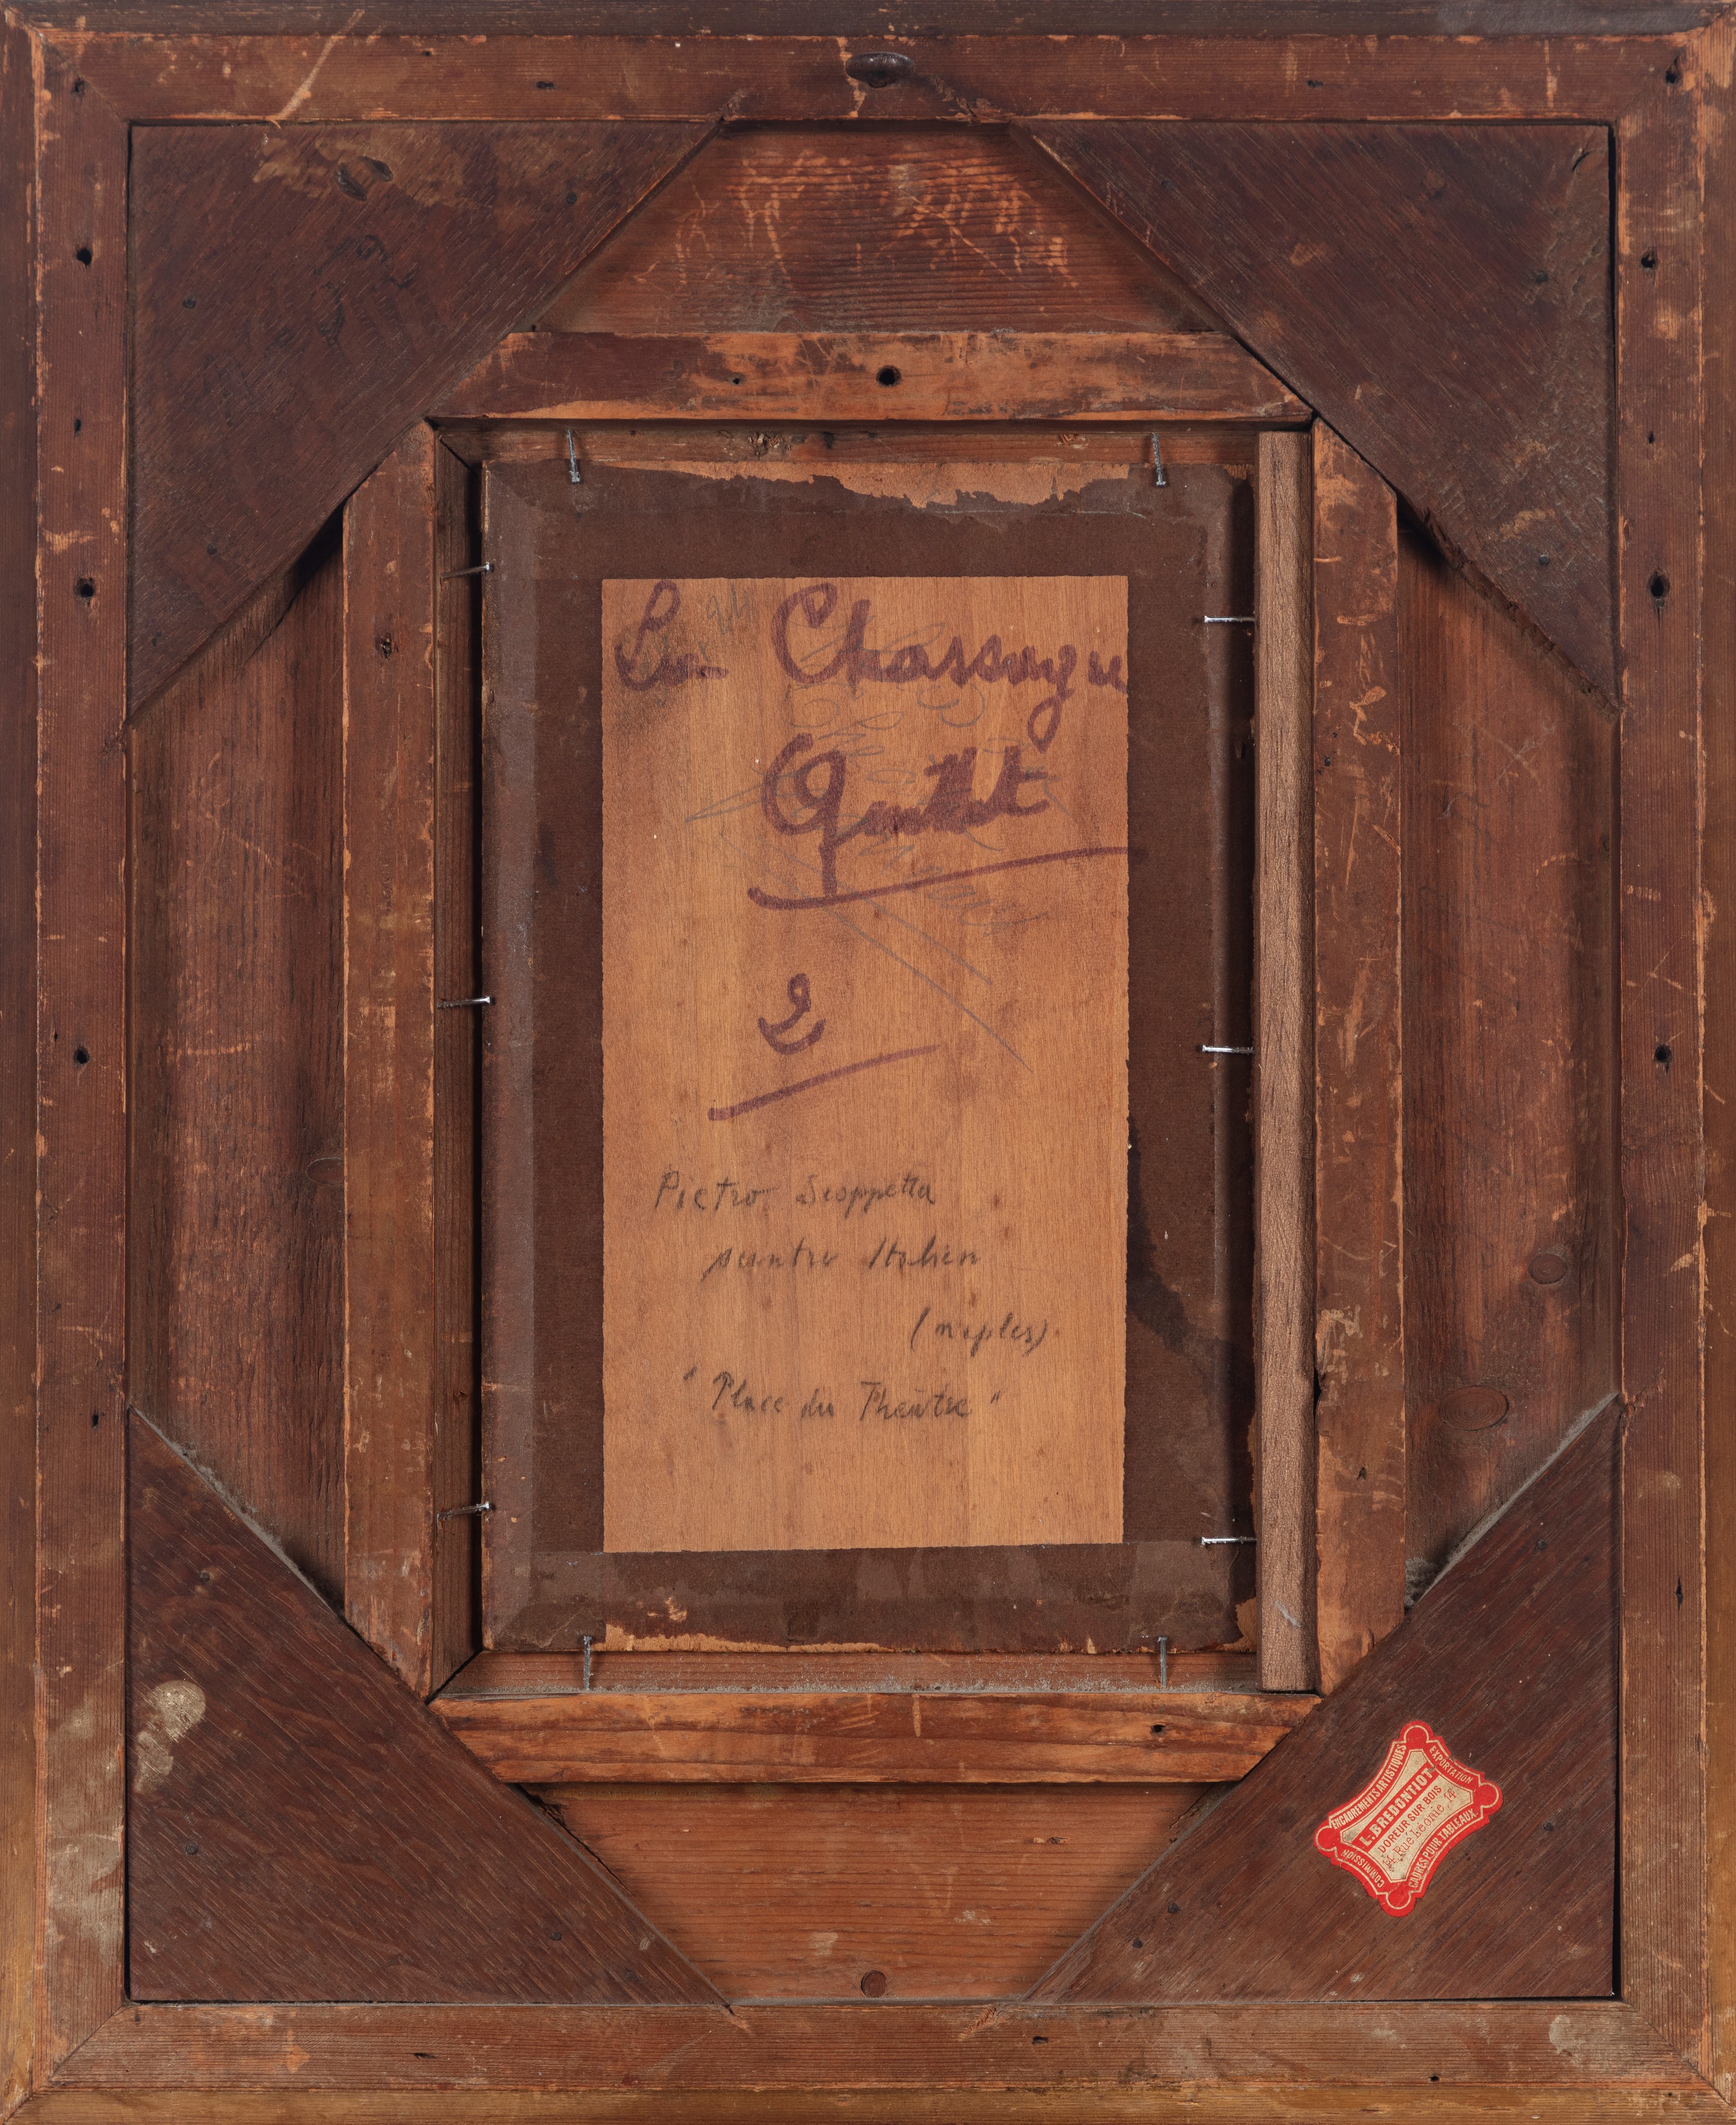 Chassaigne
Quillet
2
Pietro Scoppetta
peintre Italien
(naples)
" Place du Theatre "
ENCADREMENTS ARTISTIQUES
EXPORTATION
L. BREDONTIOT
DOREUR SUR BOIS
14 Rue Léonie 14
CADRES POUR TABLEAUX
COMMISSION